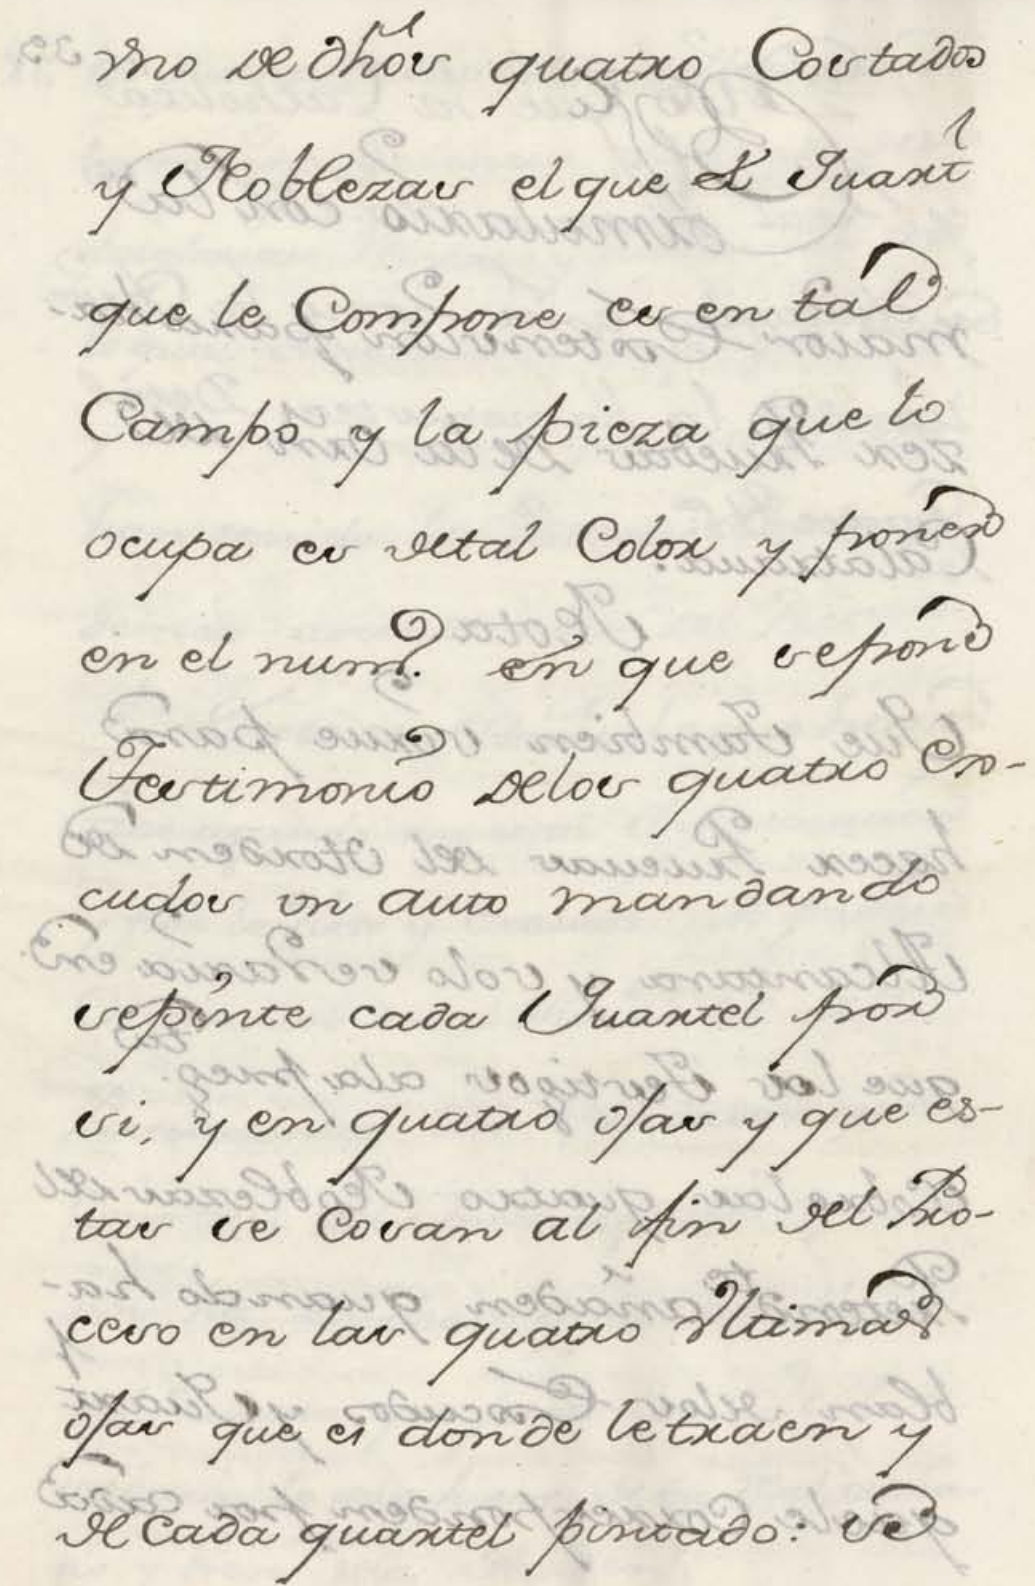 Vno de dhos quatro Costados
y Noblezas el que el Quart.l
que le Compone es en tal
Campo y la pieza que lo
ocupa es de tal Color y poner
en el num.o en que se pone
Testimonio de los quatro Es-
cudos vn auto mandando
se pinte cada Quartel por
si, y en quatro ojas y que es-
tas se Cosan al fin del Pro-
ceso en las quatro Vltimas
ojas que es donde le traen y
de cada quartel pintado: se